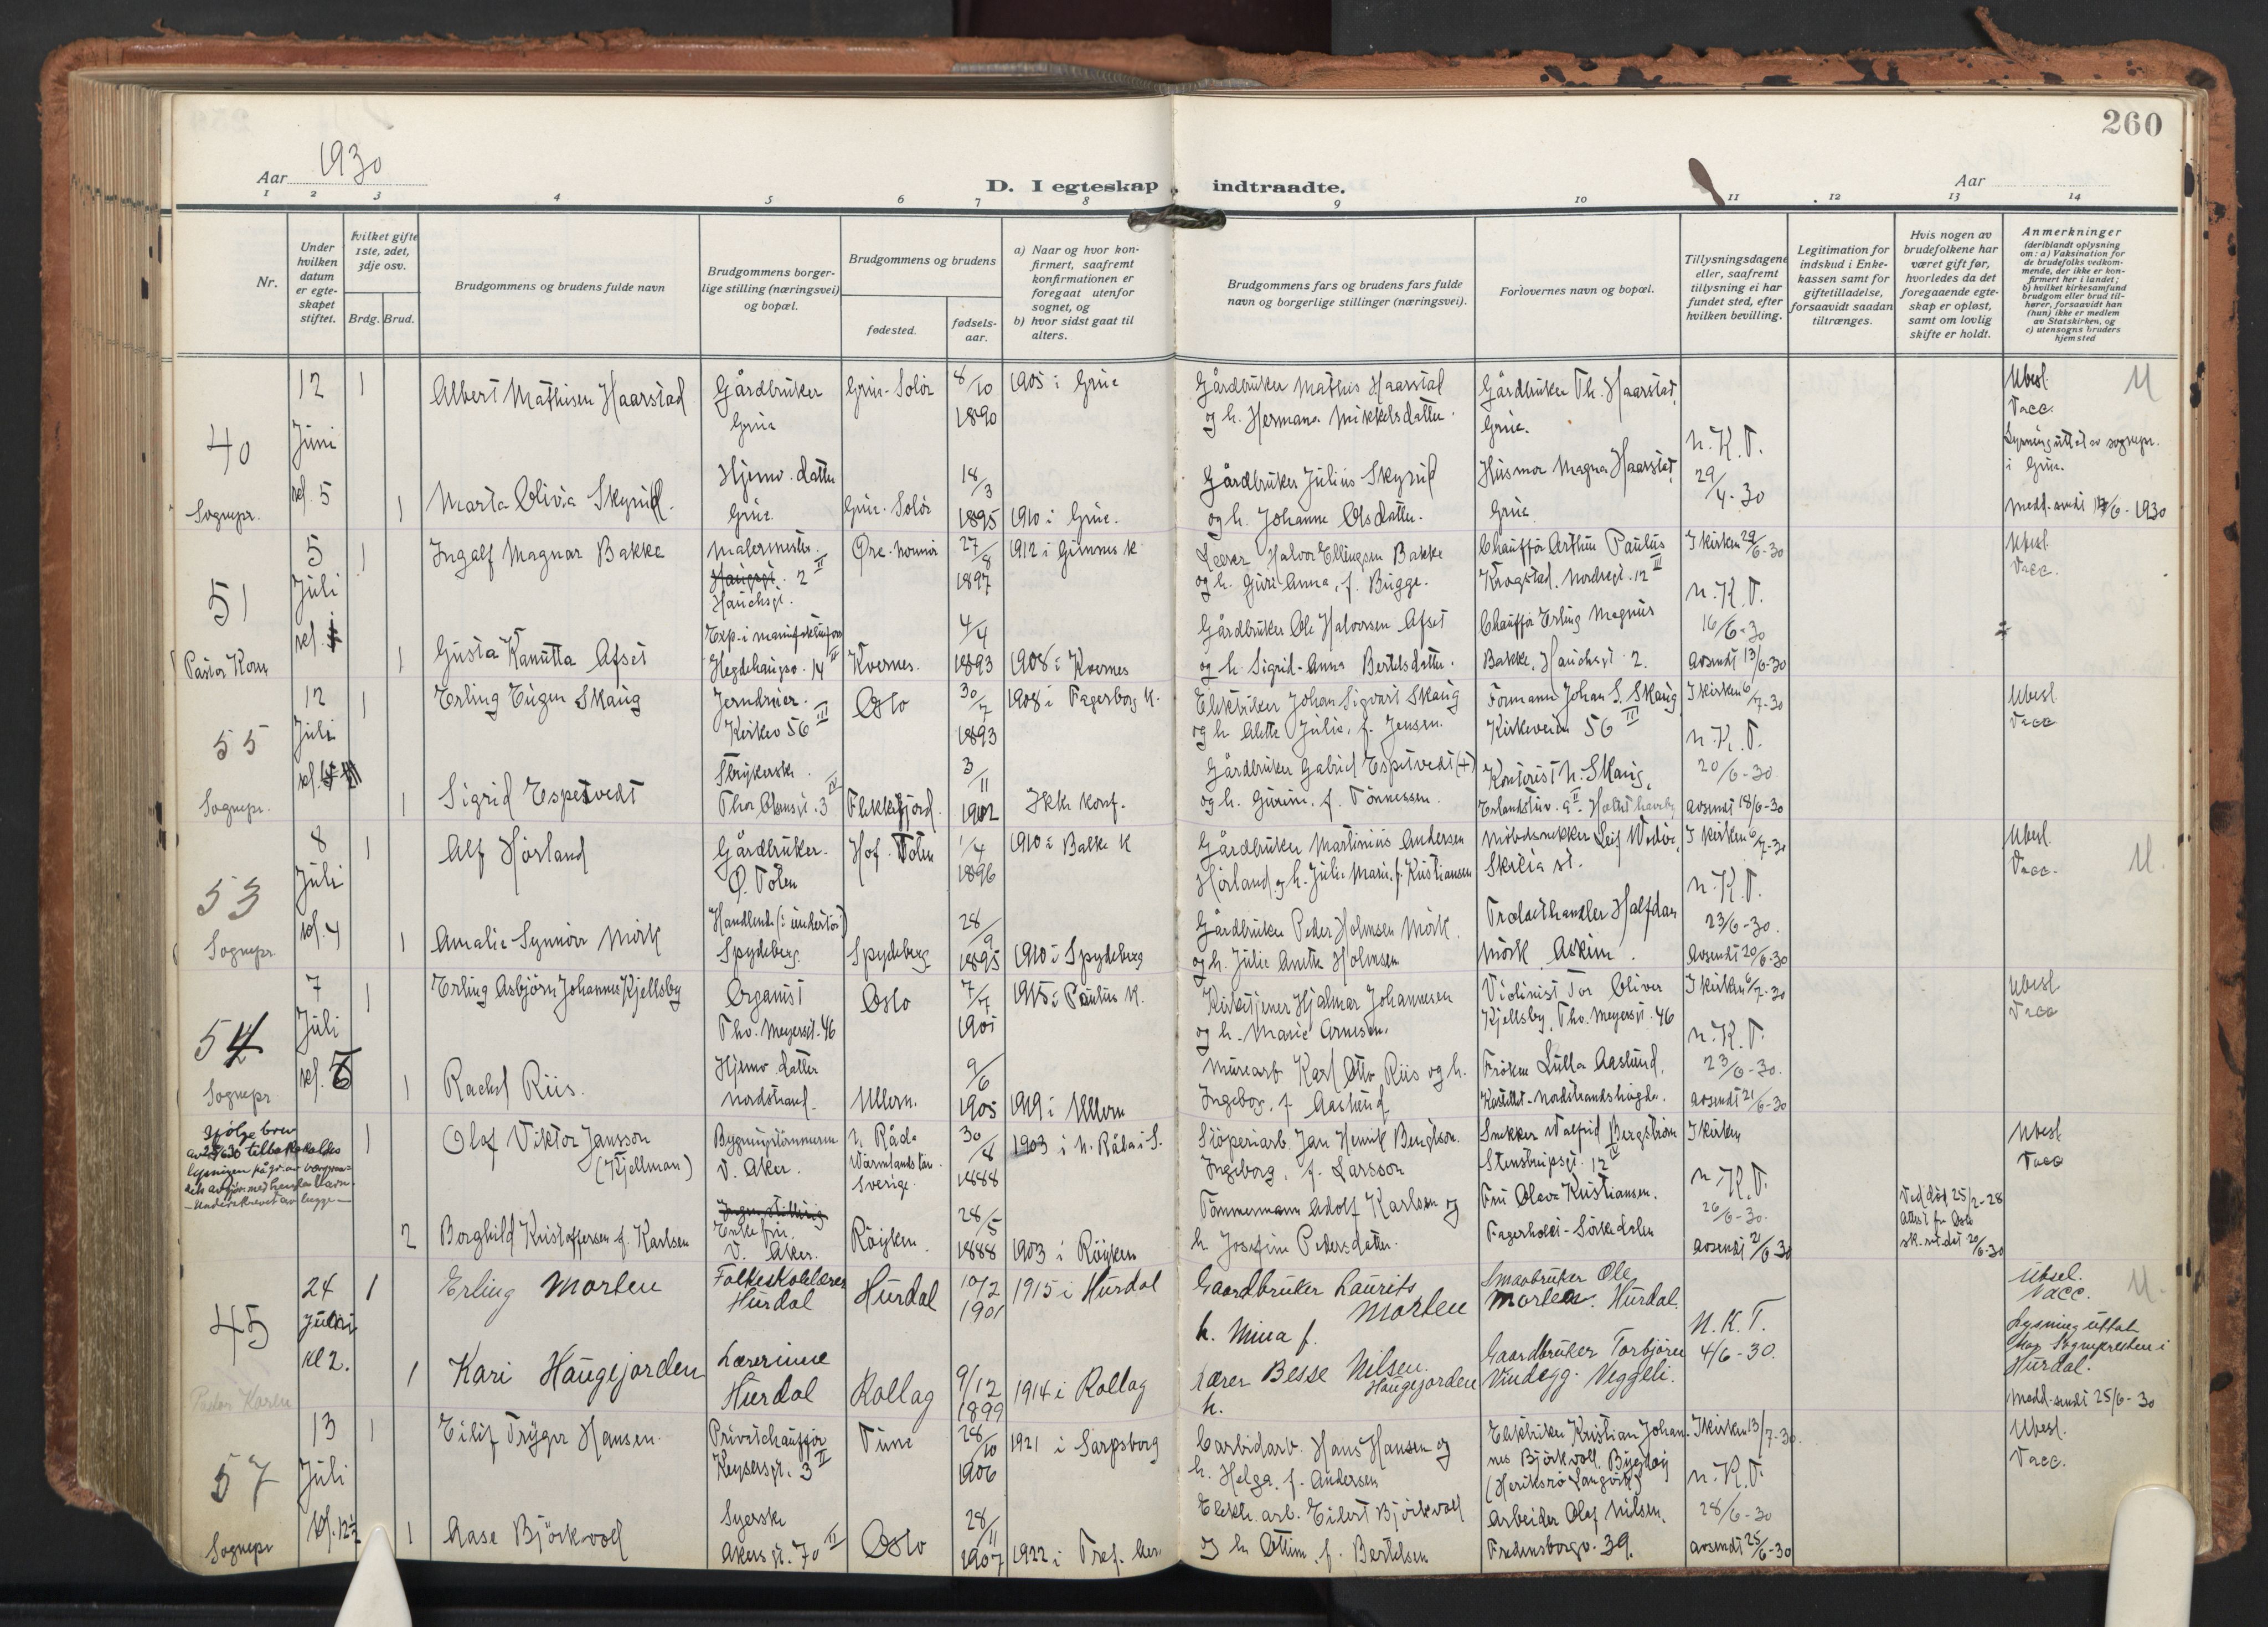 260
Aar 1930
D. I egteskap indtraadte.
Aar
1 2 3 4 5 6 7 8 9 10 11 12 13 14
Nr.
Under hvilken datum er egteskapet stiftet.
Hvilket gifte 1ste, 2det, 3dje osv.
Brdg. Brud.
Brudgommens og brudens fulde navn
Brudgommens borgerlige stilling (næringsvei) og bopæl.
Brudgommens og brudens
fødested.
fødselsaar.
a) Naar og hvor konfirmert, saafremt konfirmationen er foregaat utenfor sognet, og
b) hvor sidst gaat til alters.
Brudgommens fars og brudens fars fulde navn og borgerlige stillinger (næringsvei).
Forlovernes navn og bopæl.
Tillysningsdagene eller, saafremt tillysning ei har fundet sted, efter hvilken bevilling.
Legitimation for indskud i Enkekassen samt for giftetilladelse, forsaavidt saadan tiltrænges.
Hvis nogen av brudefolkene har været gift før, hvorledes da det foregaaende egteskap er opløst, samt om lovlig skifte er holdt.
Anmerkninger
(deriblandt oplysning om: a) Vaksination for de brudefolks vedkommende, der ikke er konfirmert her i landet; b) hvilket kirkesamfund brudgom eller brud tilhører, forsaavidt han (hun) ikke er medlem av Statskirken, og c) utensogns bruders hjemsted
40
Sognepr.
12 Juni kl. 5
1 Albert Mathisen Haarstad
Gårdbruker Grue
Grue-Solør
8/10 1890
1905 i Grue
Gårdbruker Mathis Haarstad
og h. Hermana Mikkelsdatter.
Gårdbruker Th. Haarstad, Grue.
N.K.T. 29/4-30
Ubesl. Vacc.
i Grue.
Medd. sendt 14/6-1930
U
1 Marta Olivia Skyrud.
Hjemv. datter Grue.
Grue-Solør
18/3 1895
1910 i Grue.
Gårdbruker Julius Skyrud
og h. Johanne Olsdatter.
Husmor Magna Haarstad, Grue
51
Pastor Koren
5 Juli
1 Ingolf Magnar Bakke
Malermester.
Hauchsgt. 2 II
27/8 1897
1912 i Gimnes K
Lærer Halvor Ellingsen Bakke
og h. Guri Anna, f. Bugge.
Chauffør Arthur Paulus
Krogstad. Nordregt. 12 III
I kirken 29/6-30
N.K.T. 16/6-30
Avsendt 13/6-30
Ubesl. Vacc.
1 Gusta Kanutta Afset
Hegdehaugsv. 14 II
Kvernes.
4/4 1893
1908 i Kvernes
Gårdbruker Ole Halvorsen Afset
og h. Sigrid-Anna Bertelsdatter.
Chauffør Erling Magnus
Bakke, Hauchsgt 2.
55
Sognepr.
12 Juli
1 Erling Eugen Skaug
Jerndreier.
Kirkev 56 III
Oslo
30/7 1893
1908 i Fagerborg K.
Elektriker Johan Sigvart Skaug
og h Alette Julie, f. Jensen.
Formann Johan S. Skaug
Kirkeveien 56 II
I kirken 6/7-30
N.K.T. 20/6-30
Avsendt 18/6-30
Ubesl. Vacc
1 Sigrid Espetvedt
Strykerske.
Thor Olsensgt. 3 IV
Flekkefjord.
3/11 1902
Ikke konf.
Gårdbruker Gabriel Espetvedt (+)
og h. Gurine, f. Tønnessen.
Kontorist N. Skaug,
53
Sognepr
8 Juli kl. 4
1 Alf Hörland
Gårdbruker. Ø. Toten
Hof. Toten
1/4 1896
1910 i Balke K
Gårdbruker Martinius Andersen
Hörland og h. Julie Marie, f. Kristiansen
Møbelsnekker Leif Wedöe,
Skreia st.
I kirken 6/7-30
N.K.T. 23/6-30.
Avsendt 20/6-30
Ubesl. Vacc.
U.
1 Amalie Synnöve Mörk
Spydeberg.
Spydeberg
28/9 1895
1910 i Spydeberg
Gårdbruker Peder Holmsen Mörk.
og h. Julie Anette Holmsen
Trelasthandler Halfdan
Mörk, Askim.
54
Sognepr
7 Juli
1 Erling Asbjörn Johannes Kjellsby
Organist
Thv. Meyersgt. 46
Oslo
7/7 1901
1915 i Paulus K.
Kirketjener Hjalmar Johannesen
og h. Marie Arnesen.
Violinist Tor Oliver
Kjellsby, Thv. Meyersgt. 46
I kirken 6/7-30
N.K.T. 23/6-30.
Avsendt 21/6-30
Ubesl Vacc
1 Rachel Riis.
Hjemv datter
Nordstrand.
Ullern.
9/6 1905
1919 i Ullern
Murearb. Karl Otto Riis og h.
Ingeborg, f. Aaslund
Fröken Lulla Aaslund,
Kastellet-Nordstrandshögda.
Ifølge brev
av 28/6 30 tilbakekaldes
lysningen
1 Olof Viktor Jansson
(Kjellman)
Bygningstömmerm.
V. Aker.
N. Råda
Wärmlands län.
Sverige.
30/8 1888
1903 i N. Råda i S.
Slöperiarb. Jan Henrik Bengtson.
Ingeborg, f. Larsson
Snekker Walfrid Bergström
Stenstrupsgt. 12 IV
I kirken
N.K.T. 26/6-30.
Avsendt 21/6 30
Ubesl Vacc
2 Borghild Kristoffersen f. Karlsen
Enkefru. V. Aker.
Röyken.
28/5 1888
1903 i Röyken
Tömmermann Adolf Karlsen og
h Josefine Pedersdatter.
Fru Olava Kristiansen.
Fagerholt-Sörkedalen
Ved död 25/2-28
Attest fra Oslo
sk.ret. dat 20/6-30
45
Pastor Koren
24 Juni kl 2.
1 Erling Morten
Folkeskolelærer
Hurdal
Hurdal
10/2 1901
1915 i Hurdal
Gaardbruker Laurits Morten
h. Mina f.
Smaabruker Ole
Morten. Hurdal.
N.K.T. 4/6-30.
Ubsel. Vacc.
U.
Lysning uttat
hos Sognepresten i
Hurdal.
Medd. sendt 25/6-30
1 Kari Haugejorden
Lærerinne
Hurdal
Rollag
9/12 1899
1914 i Rollag
Lærer Besse Nilsen Haugejorden
h.
Gaardbruker Torbjören
Vindegg. Veggeli.
57
Sognepr
13 Juli kl. 12½
1 Eilif Trygve Hansen.
Privatchauffør
Keysersgt. 3 II
Tune
28/10 1906
1921 i Sarpsborg
Carbidarb. Hans Hansen og
h. Helga, f. Andersen
Elektriker Kristian Johan-
nes Björkvoll, Bygdöy
I kirken 13/7-30.
N.K.T. 28/6-30
Avsendt 25/6-30
Ubesl. Vacc.
1 Aase Björkvoll
Syerske
Akersgt. 70 II
Oslo
28/11 1907
1922 i Tref. ker.
Elektr. arb. Eilert Björkvoll
og h Ottine, f. Bertelsen
Arbeider Olaf Nilsen,
Fredensborgv. 39.